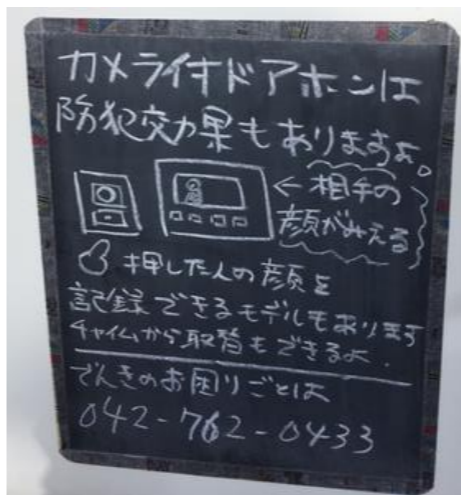 カメラ付ドアホンは
防犯効果もありますよ。
← 相手の
顔がみえる
押した人の顔を
記録できるモデルもあります
チャイムから取替もできるよ.
でんきのお困りごとは
042-762-0433